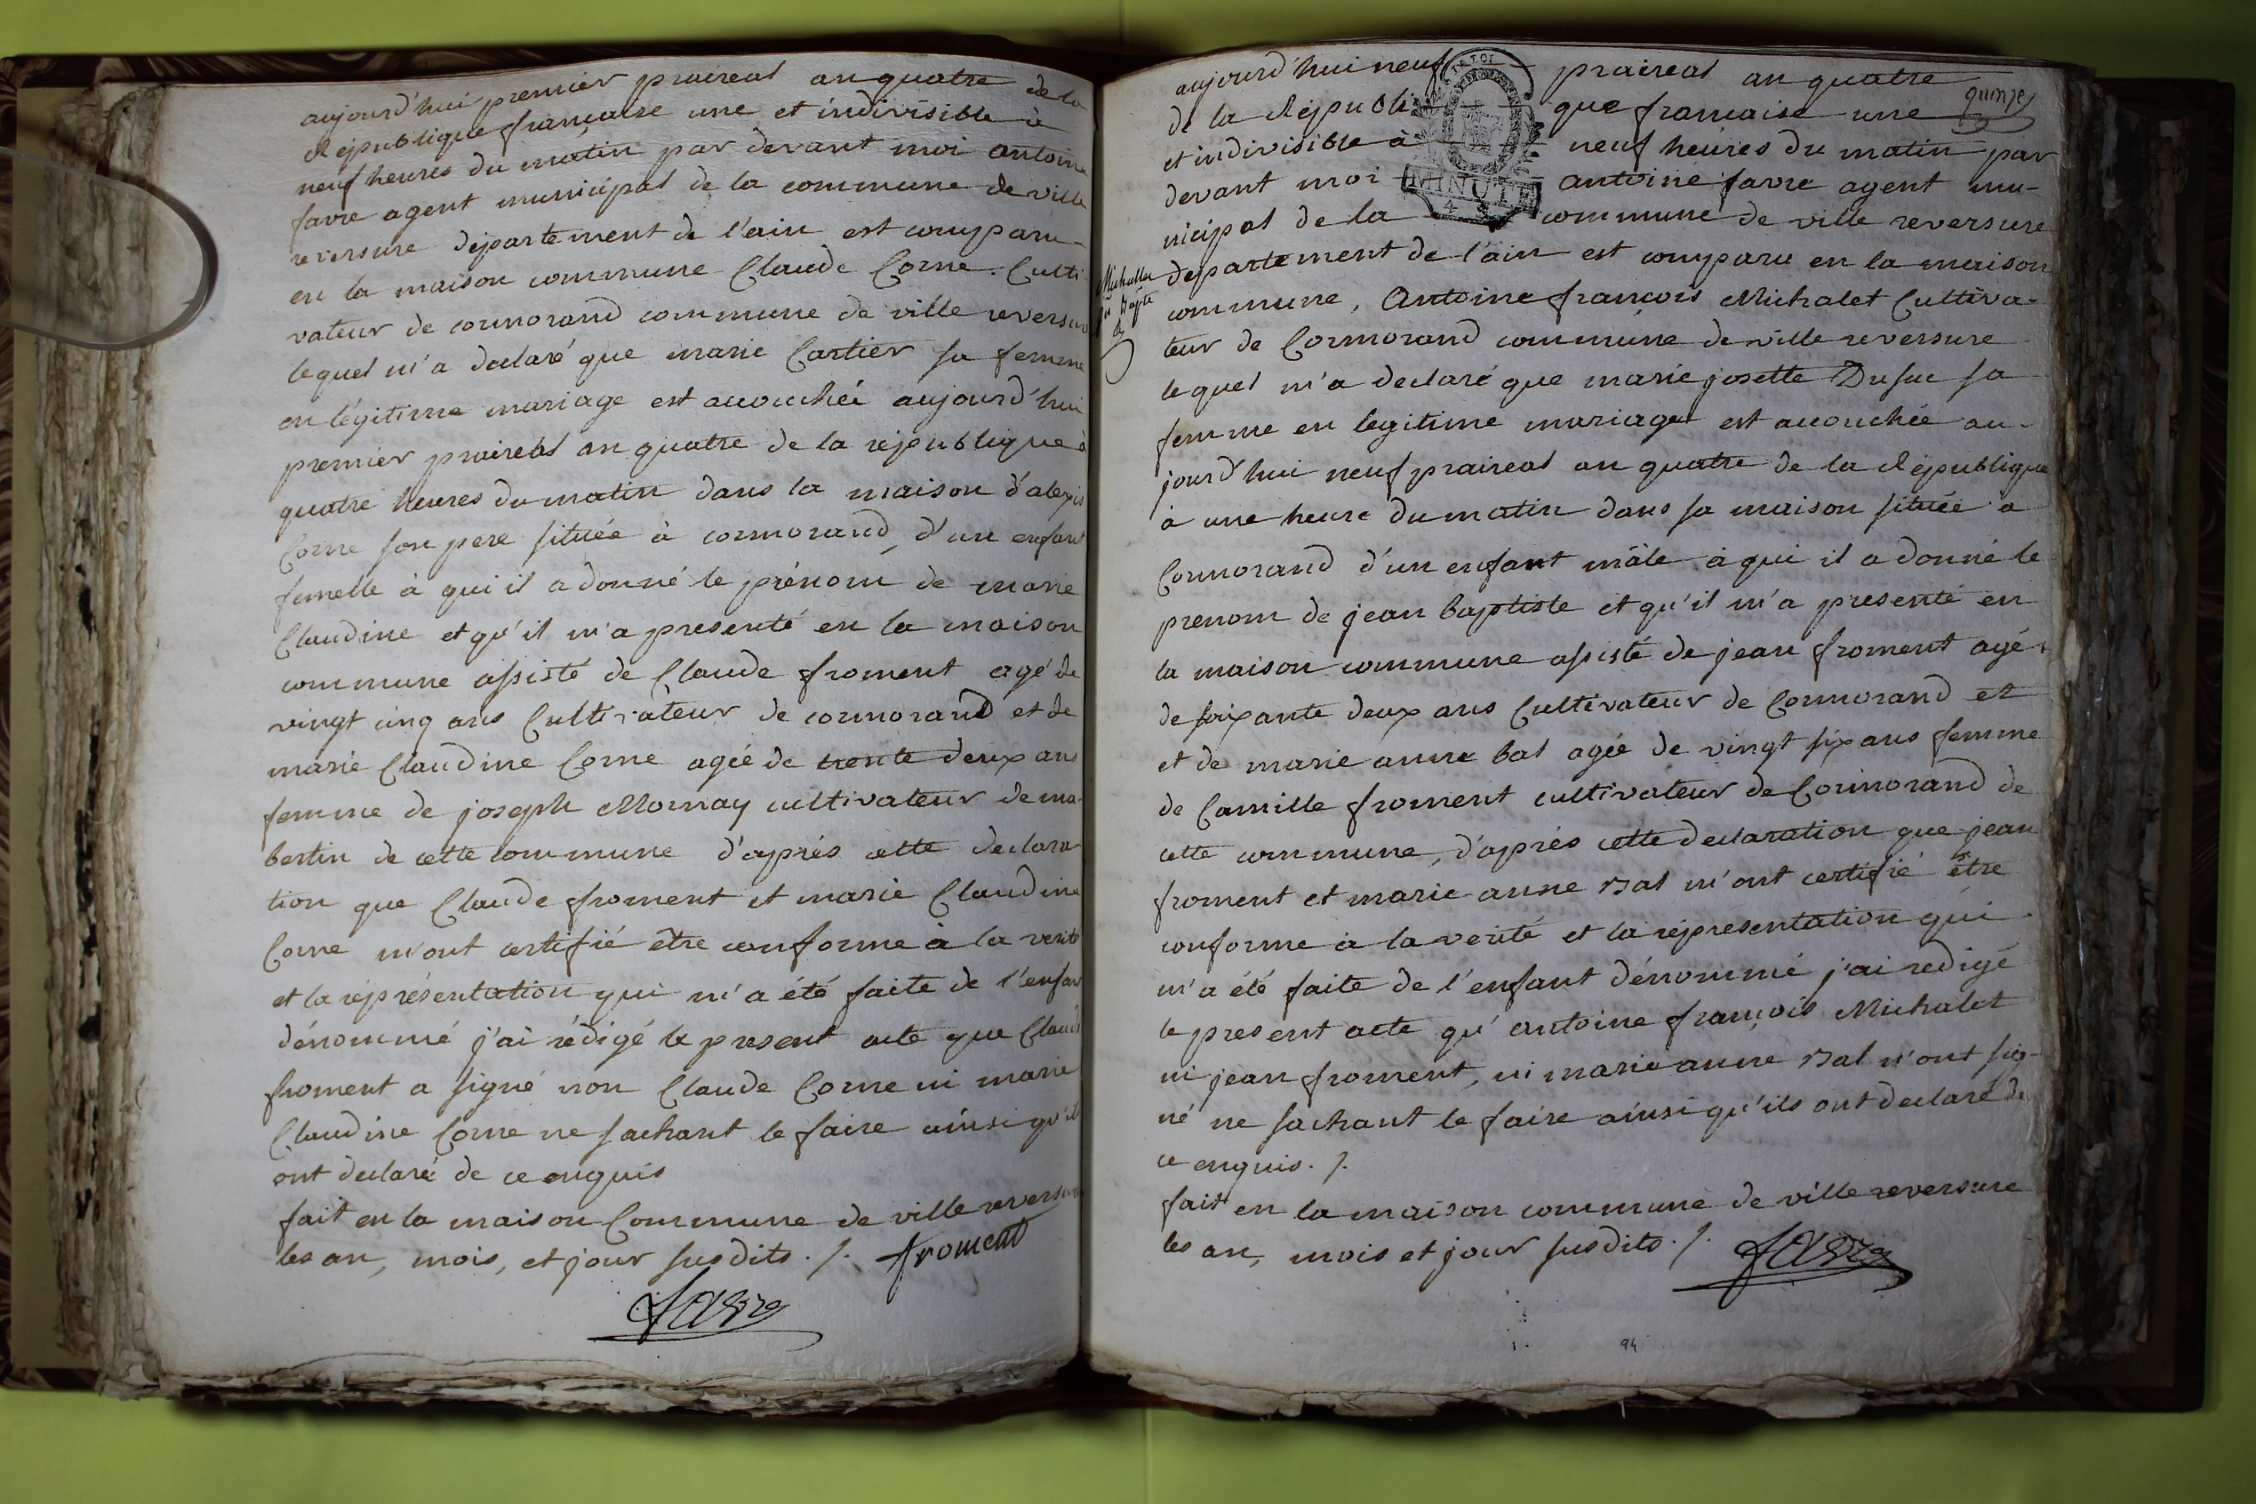 aujourd'hui premier praireal an quatre de la
République française une et indivisible à
neuf heures du matin par devant moi antoine
favre agent municipal de la commune de ville
reversure département de l'ain est comparu
en la maison commune Claude Corne Culti
vateur de cormorand commune de ville reversure
lequel m'a declaré que marie Cartier sa femme
en légitime mariage est accouchée aujourd'hui
premier praireal an quatre de la république à
quatre heures du matin dans la maison d'alexis
Corne son pere située à cormorand, d'un enfant
femelle à qui il a donné le prénom de marie
Claudine et qu'il m'a presenté en la maison
commune assisté de Claude froment agé de
vingt cinq ans Cultivateur de cormorand et de
marie Claudine Corne agée de trente deux ans
femme de joseph Mornay cultivateur de mo-
bertin de cette commune d'après cette declara-
tion que Claude froment et marie Claudine
Corne m'ont certifié être conforme à la verité
et la représentation qui m'a été faite de l'enfant
dénommé j'ai rédigé le present acte que Claude
froment a signé non Claude Corne ni marie
Claudine Corne ne sachant le faire ainsi qu'ils
ont declaré de ce enquis
fait en la maison Commune de ville reversure
les an, mois, et jour susdits ./. froment
FAvre
quinze
aujourd'hui neuf praireal an quatre
de la République française une
et indivisible à neuf heures du matin par
devant moi antoine favre agent mu-
MINUTE
nicipal de la commune de ville reversure
departement de l'ain est comparu en la maison
Michallet
jn Bapte
commune, Antoine françois Michalet Cultiva-
teur de Cormorand commune de ville reversure
lequel m'a declaré que marie josette Dufuc sa
femme en legitime mariage est accouchée au-
jourd'hui neuf praireal an quatre de la République
à une heure du matin dans sa maison située à
Cormorand d'un enfant mâle à qui il a donné le
prenom de jean baptiste et qu'il m'a presenté en
la maison commune assisté de jean froment agé
de soixante deux ans Cultivateur de Cormorand et
et de marie anne bal agée de vingt six ans femme
de Camille froment cultivateur de Cormorand de
cette commune, d'après cette declaration que jean
froment et marie anne Bal m'ont certifié être
conforme à la verité et la représentation qui
m'a été faite de l'enfant dénommé j'ai redigé
le present acte qu'antoine françois Michalet
ni jean froment, ni marie anne Bal n'ont sig-
né ne sachant le faire ainsi qu'ils ont declaré de
ce enquis ./.
fait en la maison commune de ville reversure
les an, mois et jour susdits ./. FAvre
94